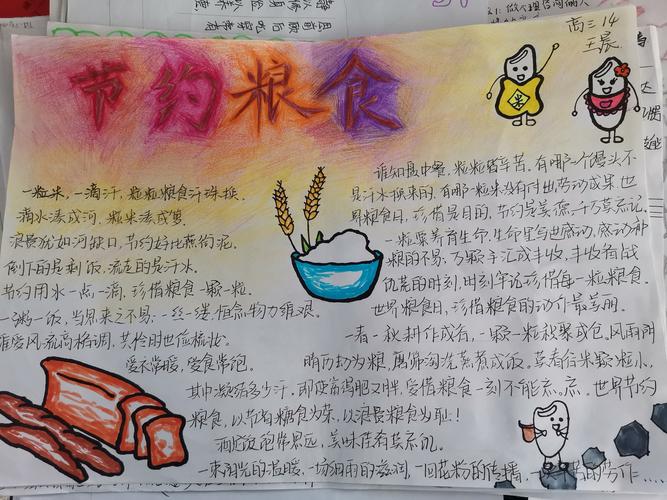 节约粮食
高三14
王晨
一粒米，一滴汗，粒粒粮食汗珠换。
滴水凑成河，粒米凑成箩。
浪费犹如河缺口，节约好比燕衔泥。
倒下的是剩饭，流走的是汗水。
节约用水一点一滴，珍惜粮食一颗一粒。
一粥一饭，当思来之不易；一丝一缕，恒念物力维艰。
谁爱风流高格调，共怜时世俭梳妆。
爱衣常暖，爱食常饱。
谁知盘中餐，粒粒皆辛苦。有哪一个馒头不
是汗水换来的，有哪一粒米没有付出劳动成果，世
界粮食日，珍惜是目的，节约是美德，千万莫忘记。
一粒粟养育生命，生命里写世感动，感动种
粮的不易，万颗子汇成丰收，丰收有战
饥荒的时刻，时刻牢记珍惜每一粒粮食。
世界粮食日，珍惜粮食的动作最美丽。
一春一秋耕作成谷，一颗一粒秋聚成包，风雨阴
晴历劫为粮，磨筛淘洗蒸煮成饭。莫看谷米颗粒小，
其中凝结多少汗。即使富得肥又胖，爱惜粮食一刻不能忘。世界节约
粮食，以节约粮食为荣，以浪费粮食为耻！
酒足饭饱常思远，美味在前莫忘饥。
一束阳光的温暖，一场细雨的滋润，一回花粉的传播，
米